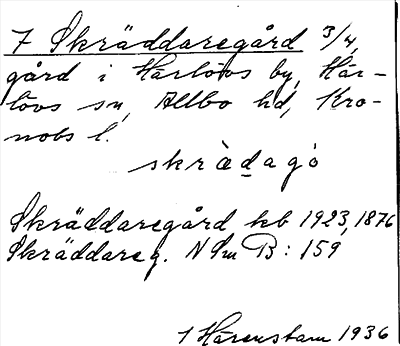 7 Skräddaregård 3/4,
gård i Härlövs by, Här-
lövs sn, Allbo hd, Kro-
nobs l.
skrädagó
Skräddaregård kb 1923, 1876
Skräddareg. N Sm B: 159
1 Härenstam 1936